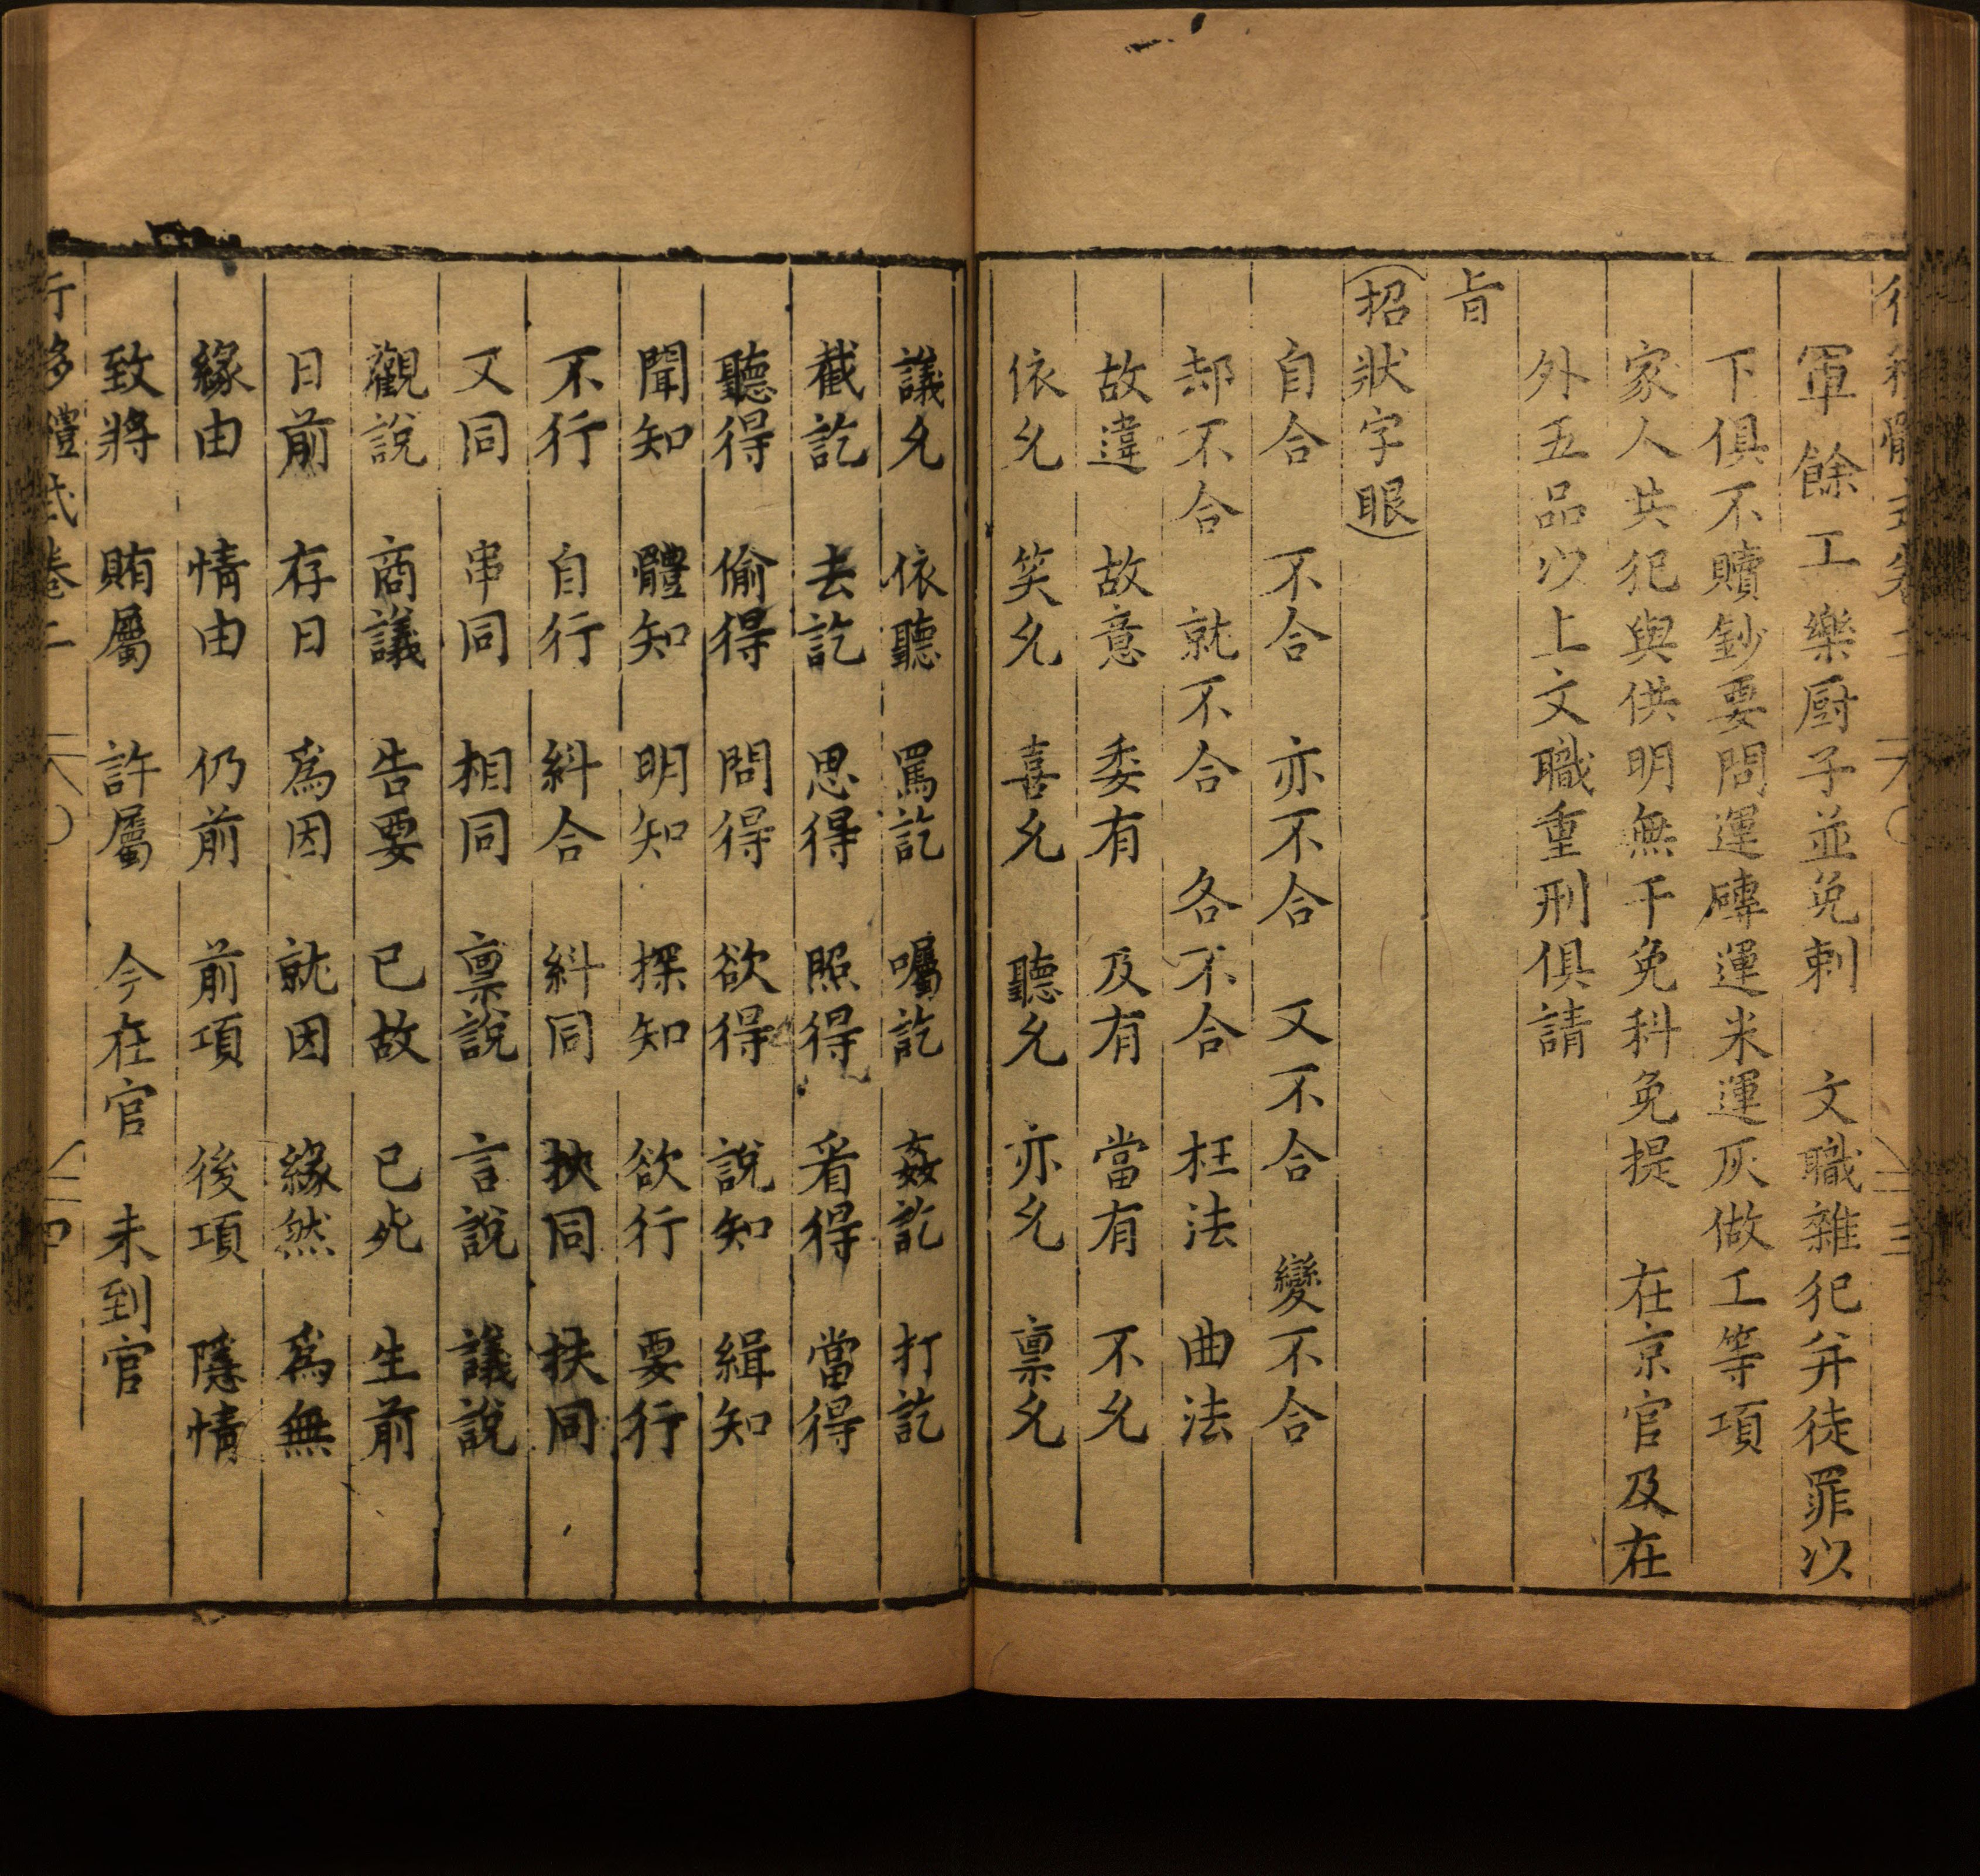 軍餘工樂厨子並免刺　文職雜犯并徒罪以
下俱不贖鈔要問運磚運米運灰做工等項
家人共犯與供明無干免科免提　在京官及在
外五品以上文職重刑俱請
旨
招狀字眼
自合　不合　亦不合　又不合　變不合
却不合　就不合　各不合　枉法　曲法
故違　故意　委有　及有　當有　不允
依允　笑允　喜允　聽允　亦允　禀允
議允　依聽　罵訖　囑訖　姦訖　打訖
截訖　去訖　思得　照得　看得　當得
聽得　偷得　問得　欲得　說知　緝知
聞知　體知　明知　探知　欲行　要行
不行　自行　糾合　糾同　挾同　扶同
又同　串同　相同　禀說　言說　議說
觀說　商議　告要　已故　已死　生前
日前　存日　為因　就因　緣然　為無
緣由　情由　仍前　前項　後項　隱情
致將　賄屬　許屬　今在官　未到官
行移體式卷二